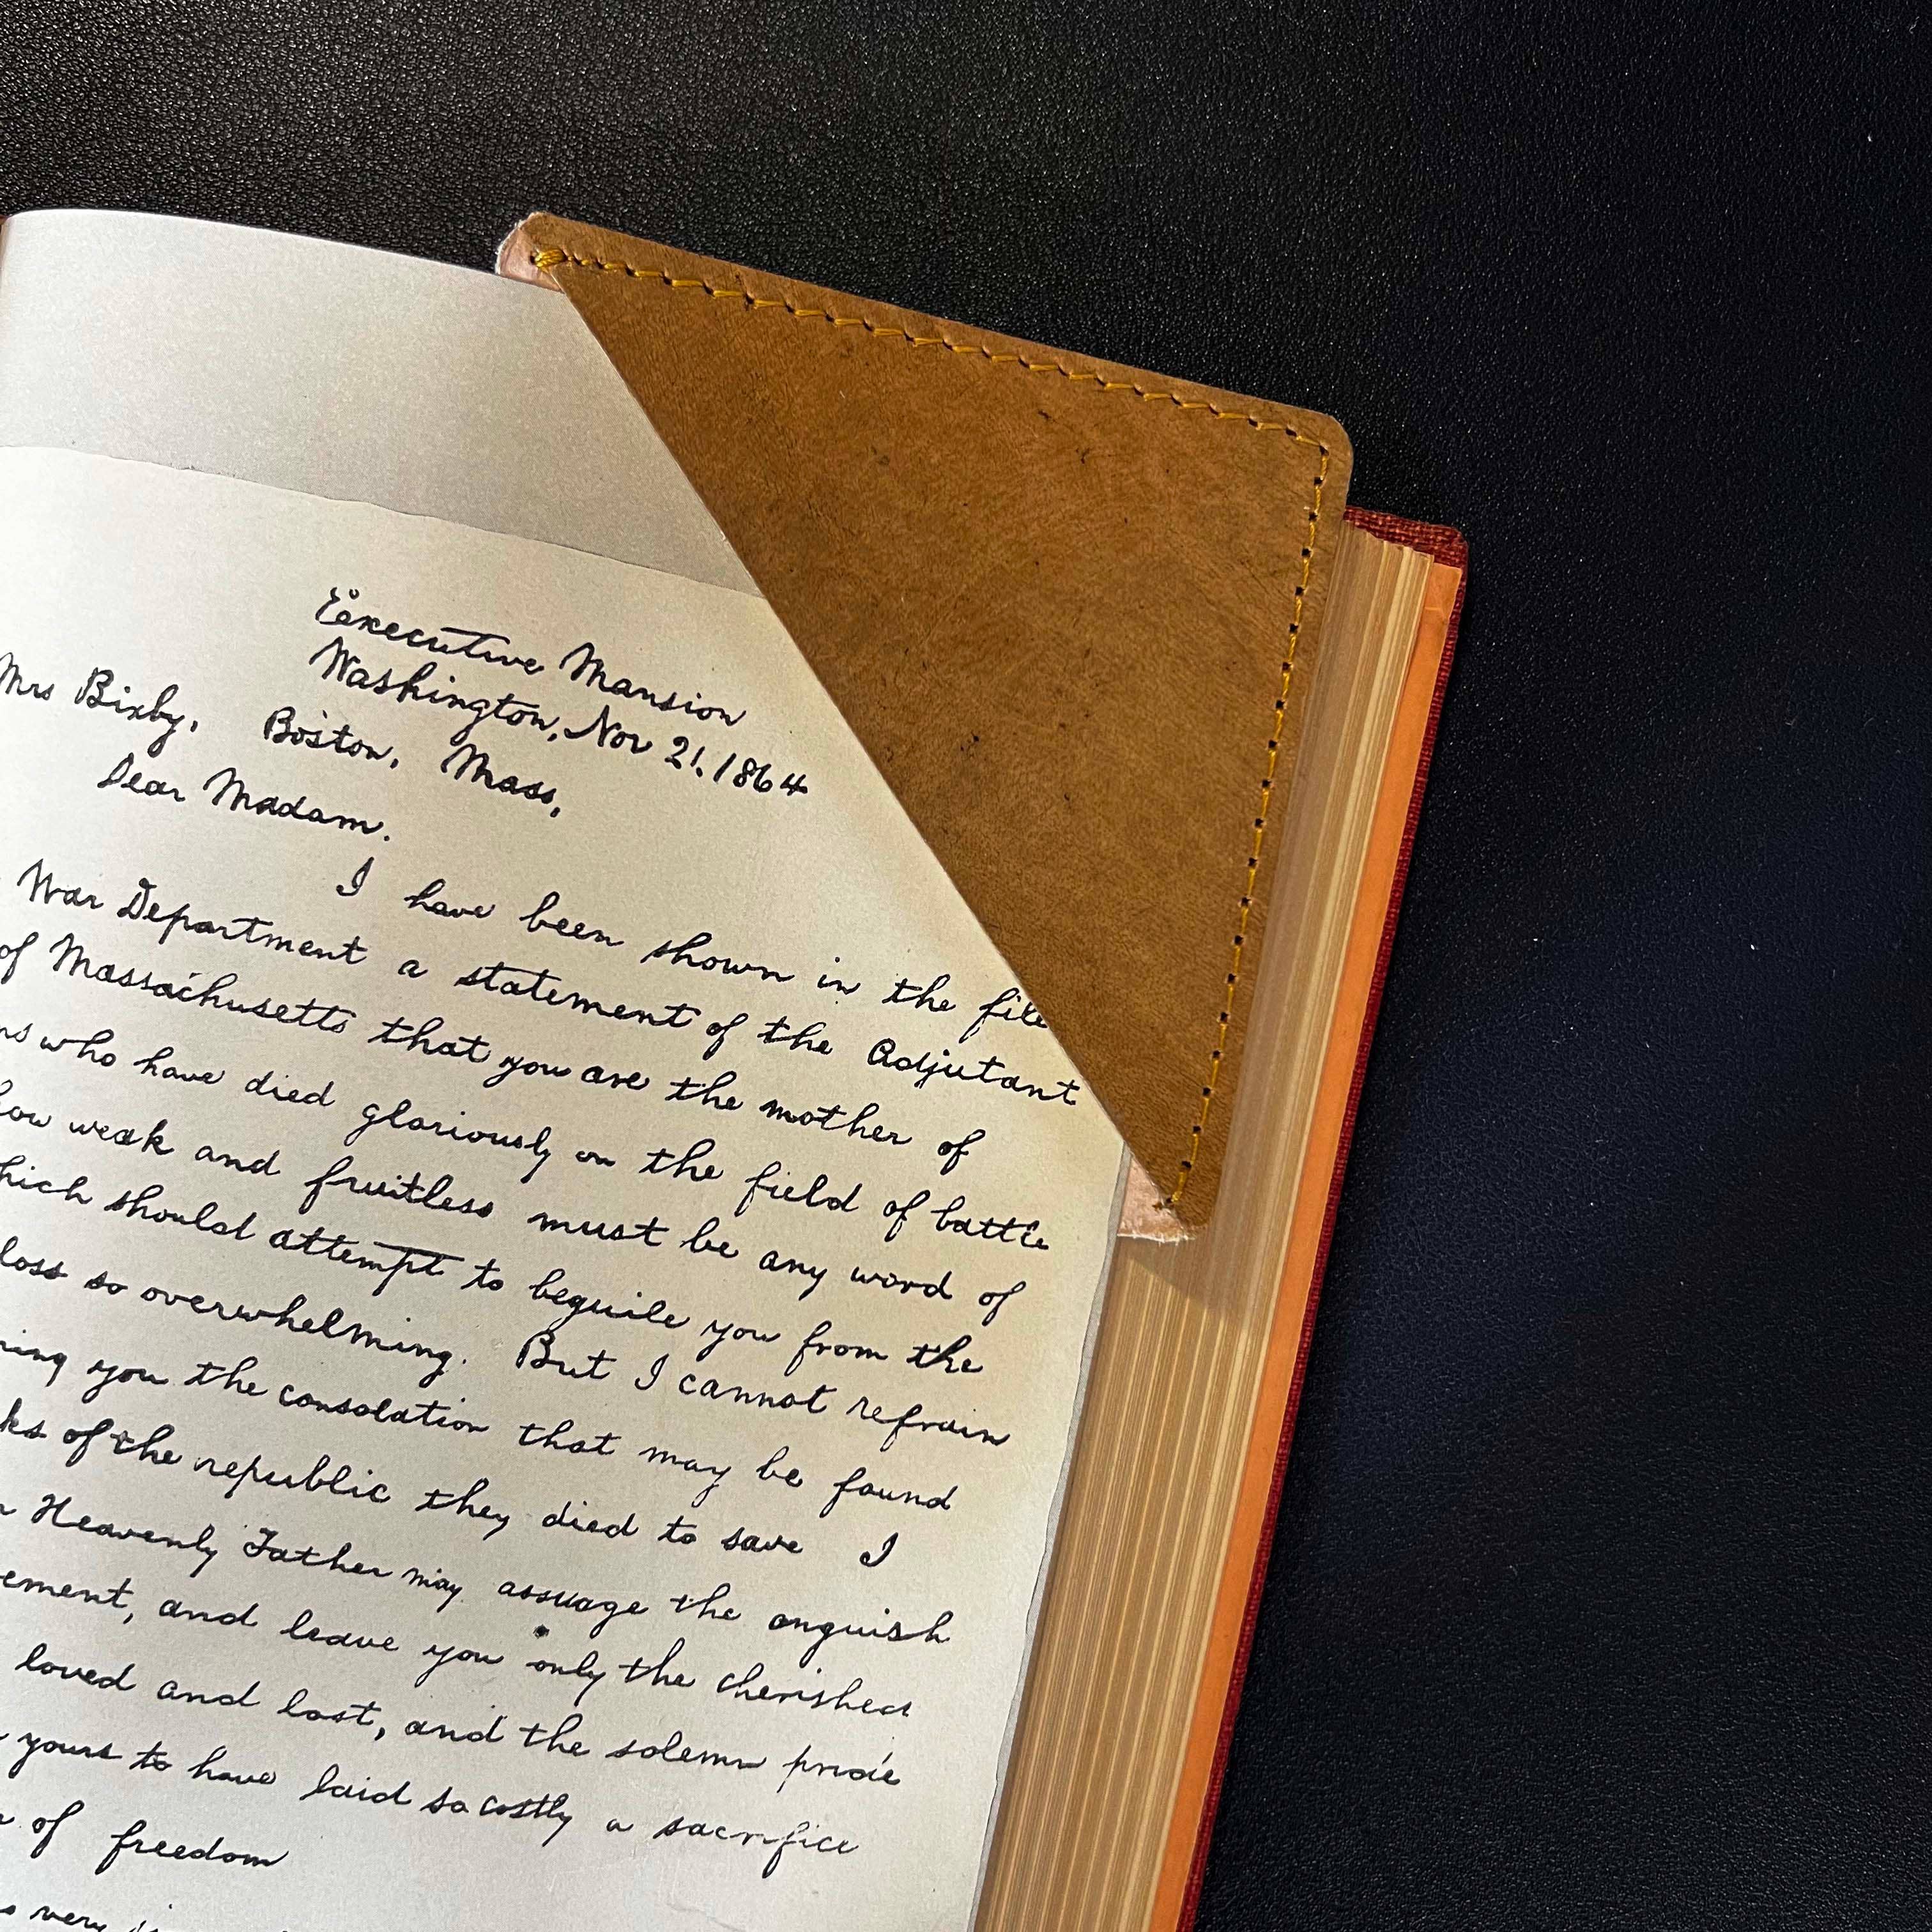 Executive Mansion
Washington, Nov 21, 1864
Mrs Bixby, Boston, Mass,
Dear Madam.
I have been shown in the file
War Department a statement of the Adjutant
of Massachusetts that you are the mother of
who have died gloriously on the field of battle
weak and fruitless must be any word of
should attempt to beguile you from the
loss so overwhelming. But I cannot refrain
you the consolation that may be found
of the republic they died to save I
Heavenly Father may assuage the anguish
, and leave you only the cherished
loved and lost, and the solemn pride
yours to have laid so costly a sacrifice
of freedom
very